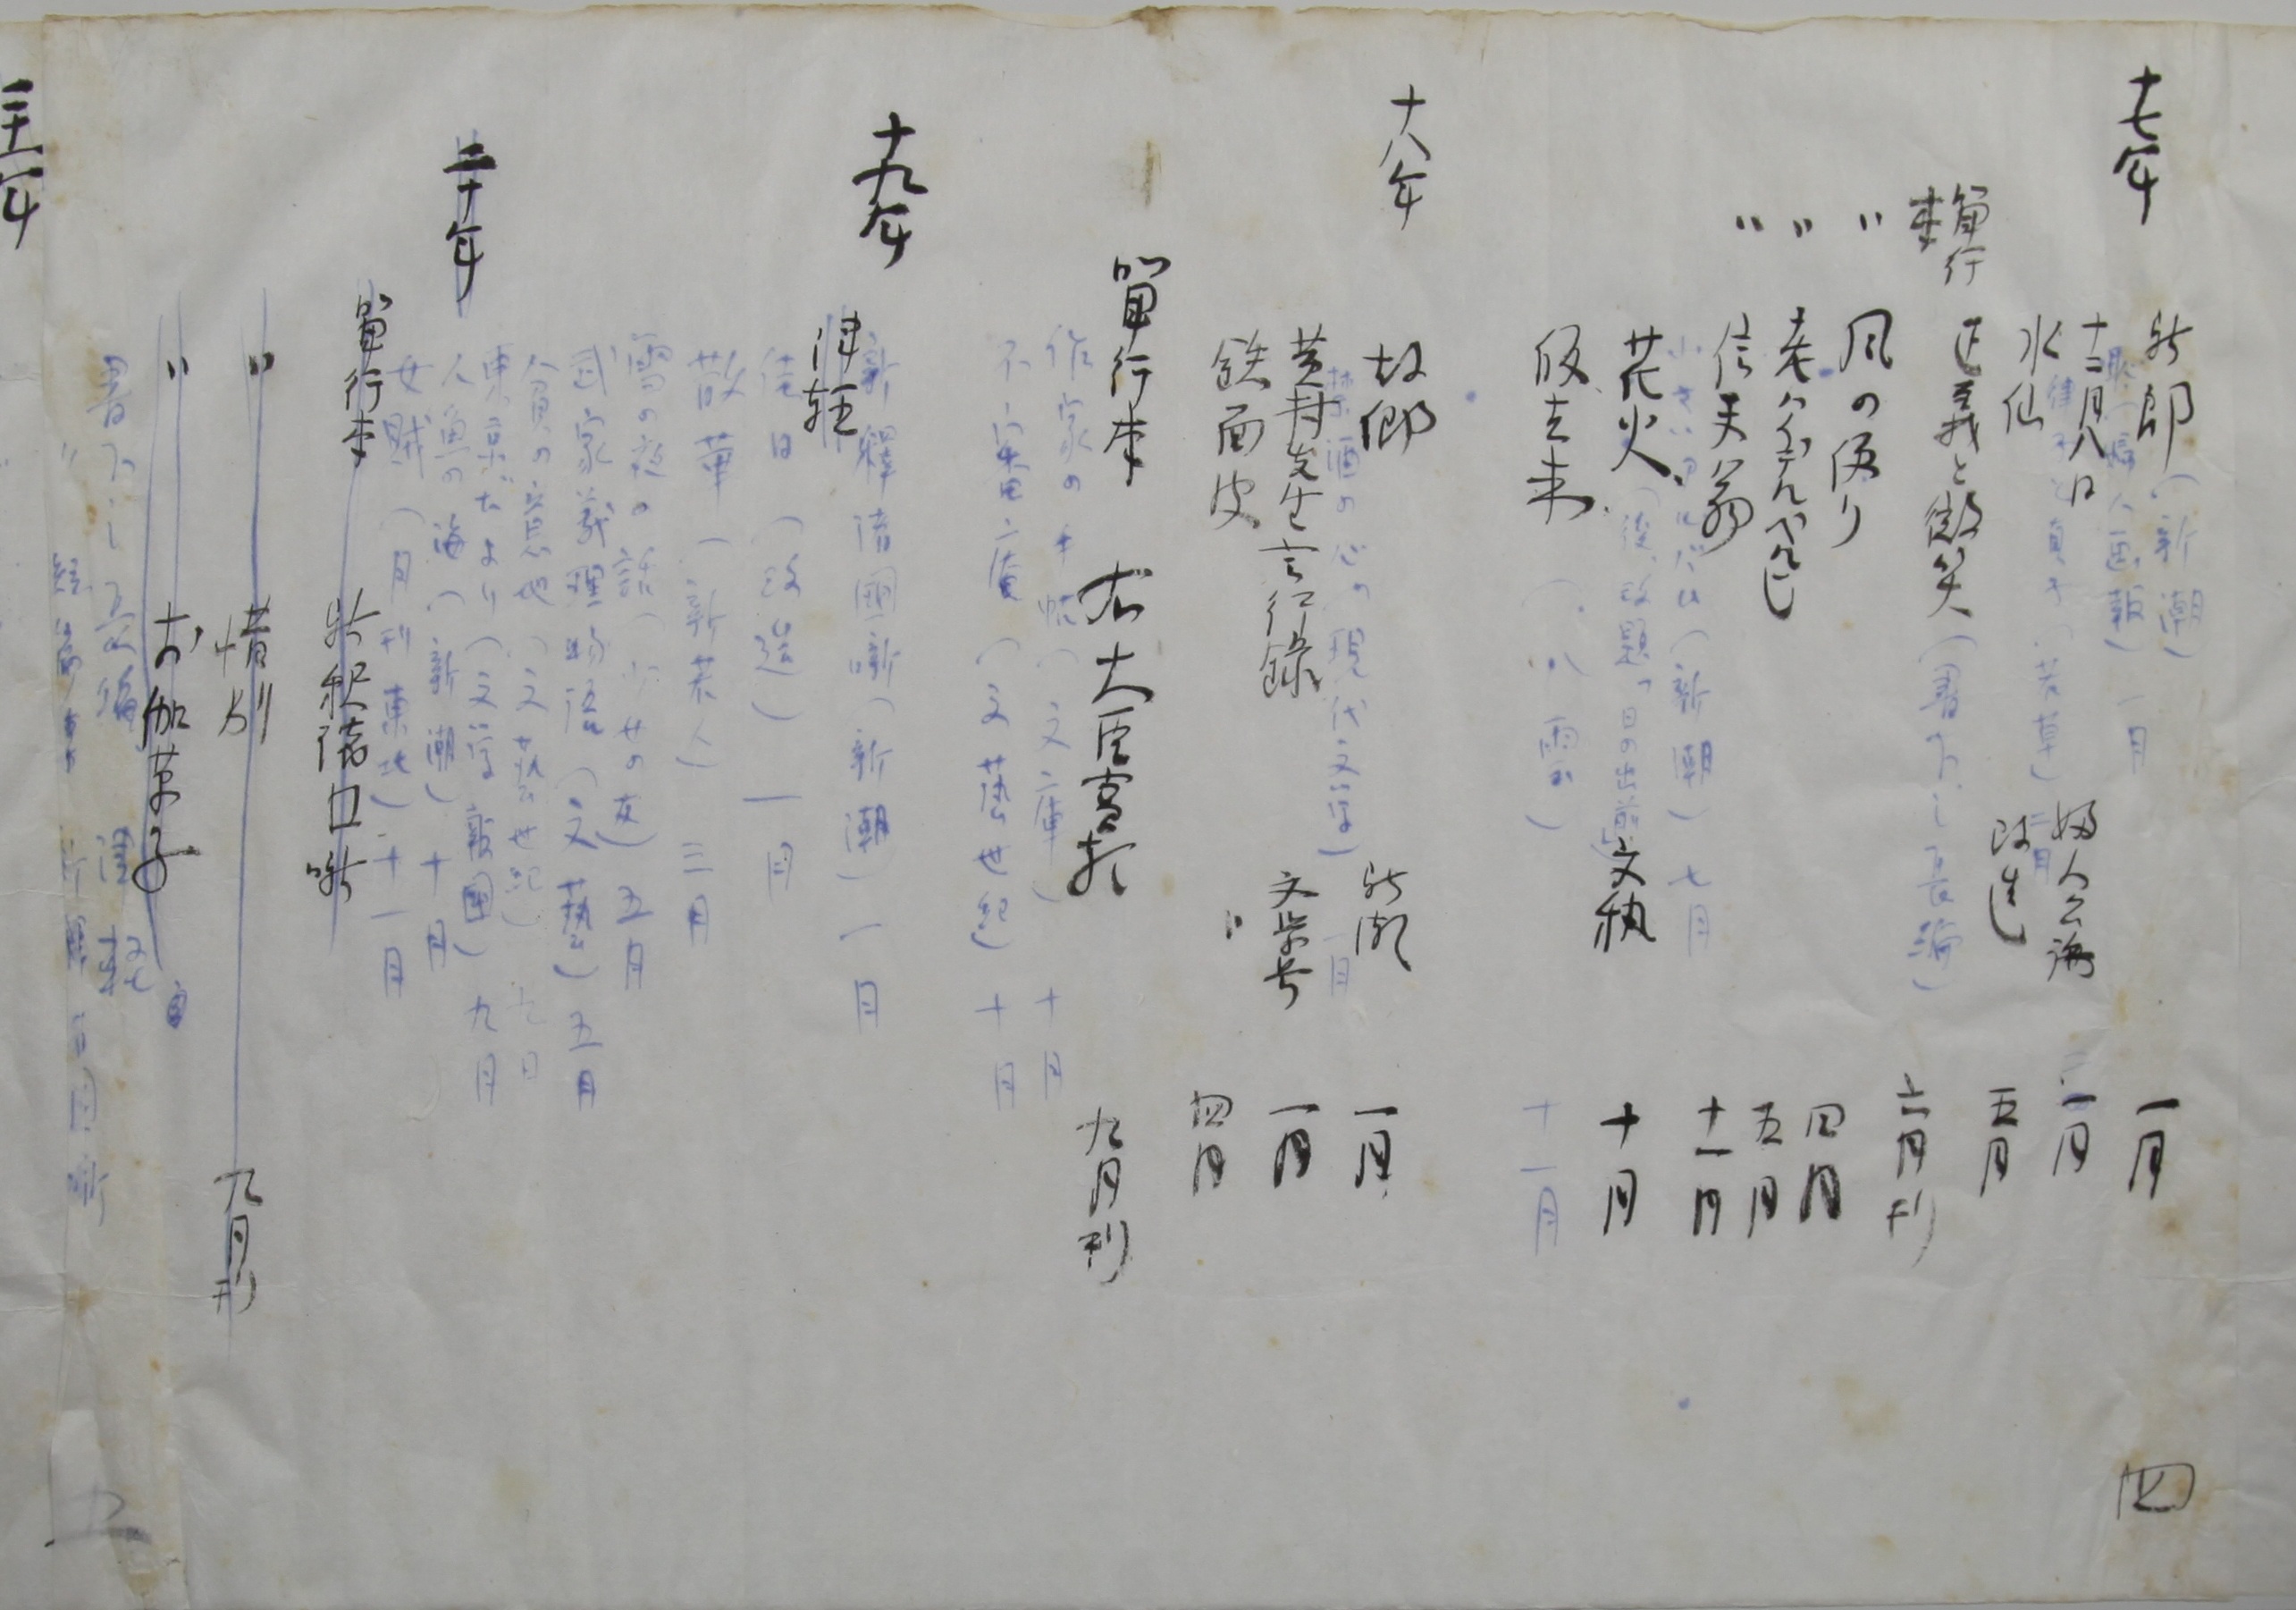 十七年
新郎（新潮）一月
恥（婦人画報）一月
十二月八日 婦人公論 一月
律子と貞子（若草）二月
水仙 改造 五月
単行本 正義と微笑（書下し長編）六月刊
〃 風の便り 四月
〃 老ハイデルベルヒ 五月
〃 信天翁 十一月
小さいアルバム（新潮）七月
花火（後、改題「日の出前」 文芸 十月
帰去来（八雲）十一月
十八年
故郷 新潮 一月
禁酒の心（現代文学）一月
黄村先生言行録 文学界 一月
鉄面皮 〃 四月
単行本 右大臣實朝 九月刊
作家の手帖（文庫）十月
不審庵（文藝世紀）十月
十九年
新釋諸國噺（新潮）一月
津軽
佳日（改造）一月
散華（新若人）三月
雪の夜の話（少女の友）五月
武家義理物語（文藝）五月
貧の意地（文藝世紀）九月
東京だより（文学報國）九月
人魚の海（新潮）十月
女賊（月刊東北）十一月
二十年
単行本 新釈諸国噺
〃 惜別 九月刊
〃 お伽草子
書下し長編 津軽
二十一年
四
五